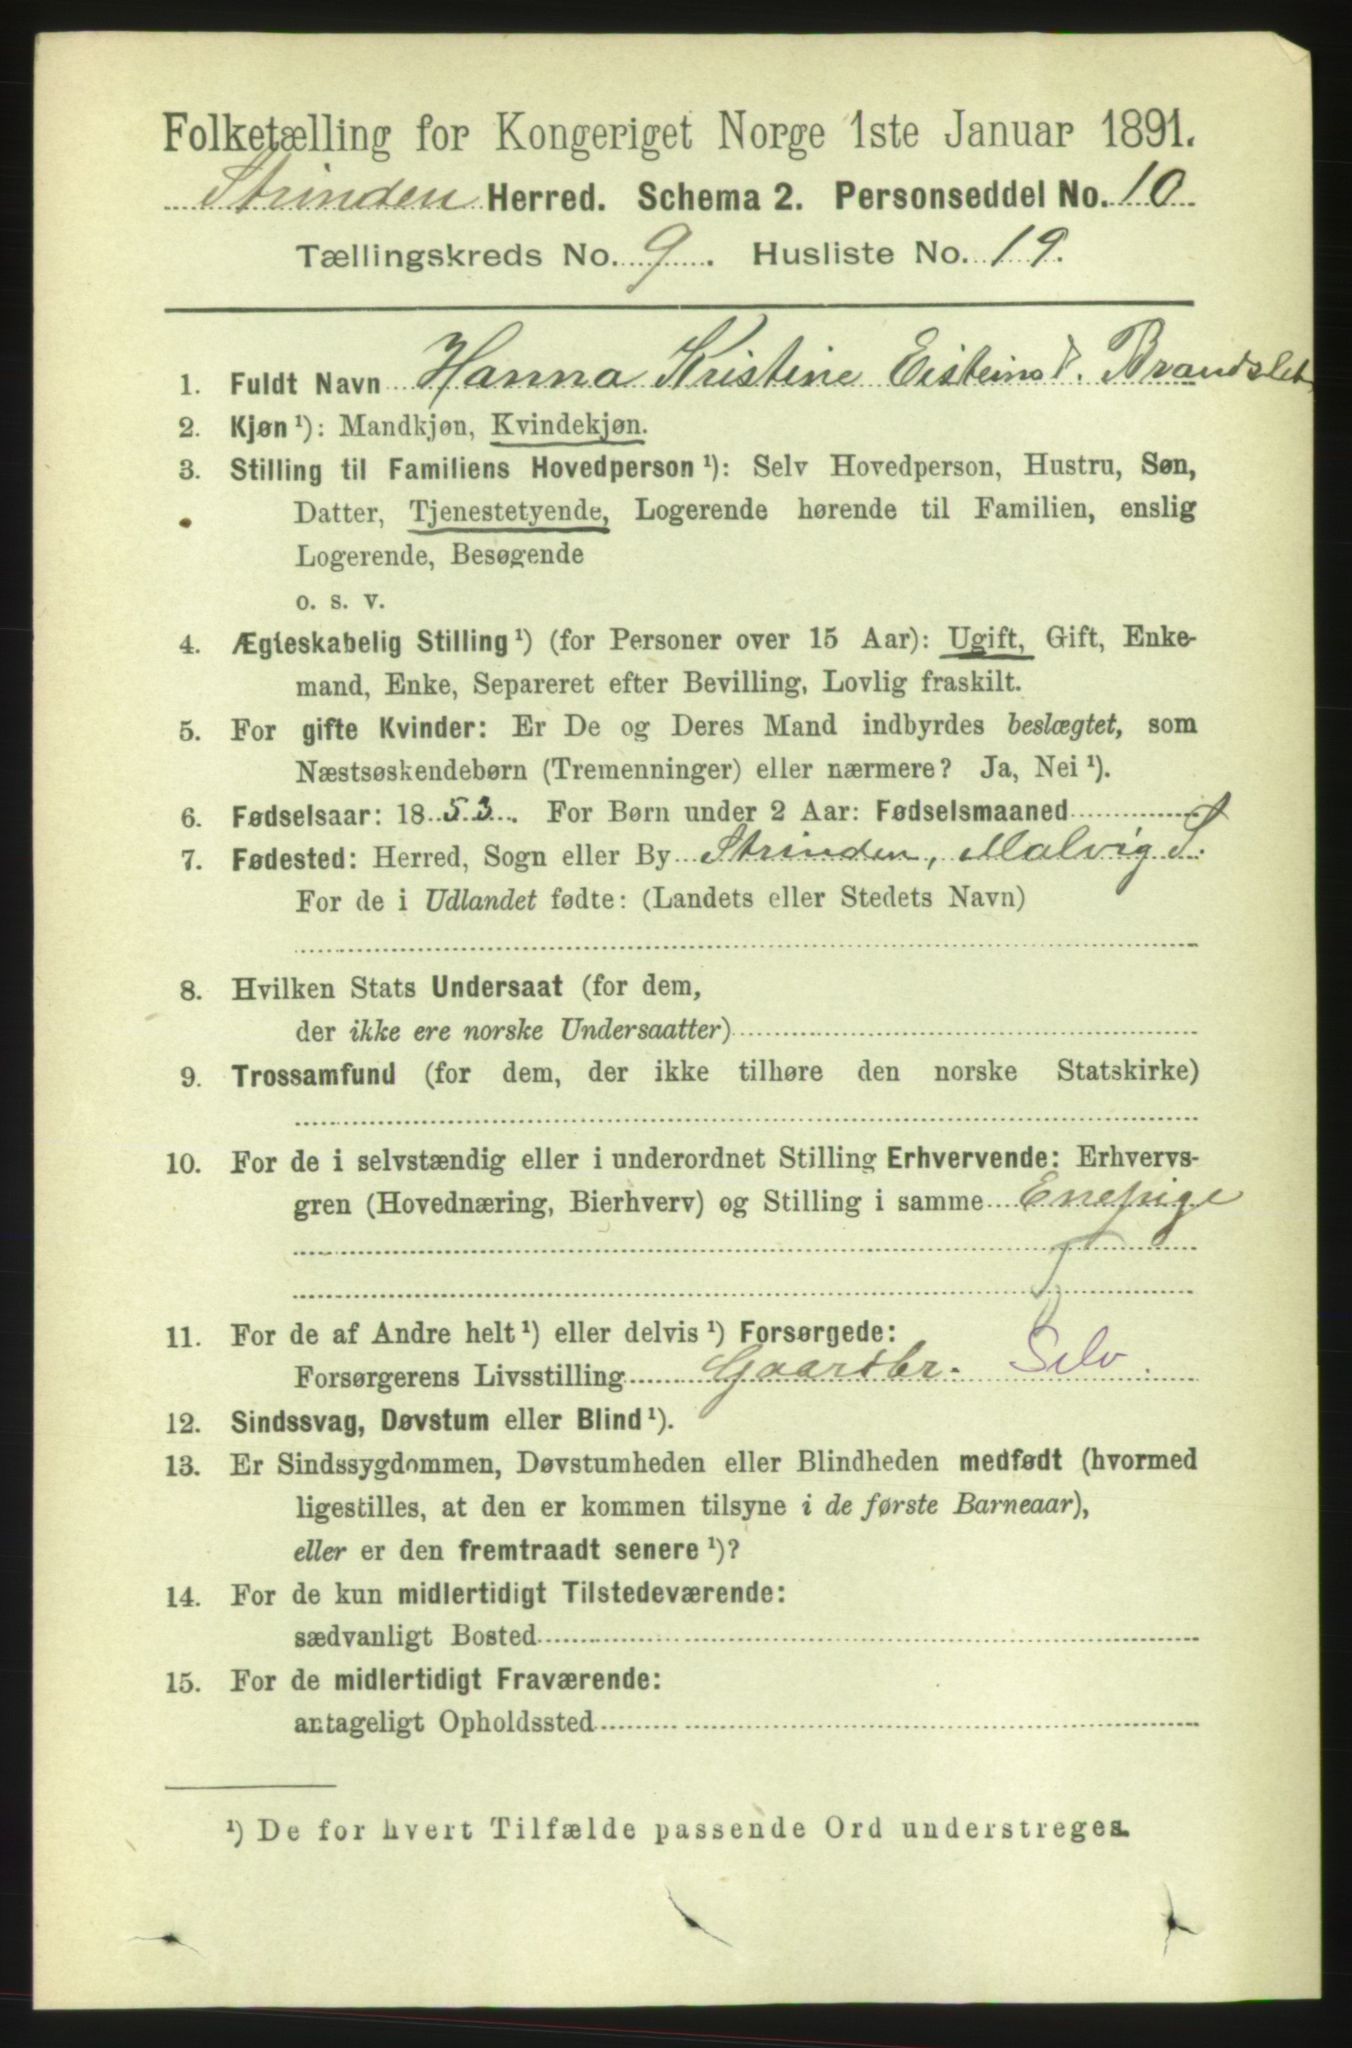 Folketælling for Kongeriget Norge 1ste Januar 1891.
Strinden Herred. Schema 2. Personseddel No. 10
Tællingskreds No. 9. Husliste No. 19.
1. Fuldt Navn Hanna Kristine Eisteinsd. Brandslet
2. Kjøn ¹): Mandkjøn, Kvindekjøn.
3. Stilling til Familiens Hovedperson ¹): Selv Hovedperson, Hustru, Søn,
Datter, Tjenestetyende, Logerende hørende til Familien, enslig
Logerende, Besøgende
o. s. v.
4. Ægteskabelig Stilling ¹) (for Personer over 15 Aar): Ugift, Gift, Enke-
mand, Enke, Separeret efter Bevilling, Lovlig fraskilt.
5. For gifte Kvinder: Er De og Deres Mand indbyrdes beslægtet, som
Næstsøskendebørn (Tremenninger) eller nærmere? Ja, Nei ¹).
6. Fødselsaar: 1853. For Børn under 2 Aar: Fødselsmaaned
7. Fødested: Herred, Sogn eller By Strinden, Malvig S.
For de i Udlandet fødte: (Landets eller Stedets Navn)
8. Hvilken Stats Undersaat (for dem,
der ikke ere norske Undersaatter)
9. Trossamfund (for dem, der ikke tilhøre den norske Statskirke)
10. For de i selvstændig eller i underordnet Stilling Erhvervende: Erhvervs-
gren (Hovednæring, Bierhverv) og Stilling i samme Enepige
11. For de af Andre helt ¹) eller delvis ¹) Forsørgede:
Forsørgerens Livsstilling Gaardbr. Selv.
12. Sindssvag, Døvstum eller Blind ¹).
13. Er Sindssygdommen, Døvstumheden eller Blindheden medfødt (hvormed
ligestilles, at den er kommen tilsyne i de første Barneaar),
eller er den fremtraadt senere ¹)?
14. For de kun midlertidigt Tilstedeværende:
sædvanligt Bosted
15. For de midlertidigt Fraværende:
antageligt Opholdssted
¹) De for hvert Tilfælde passende Ord understreges.